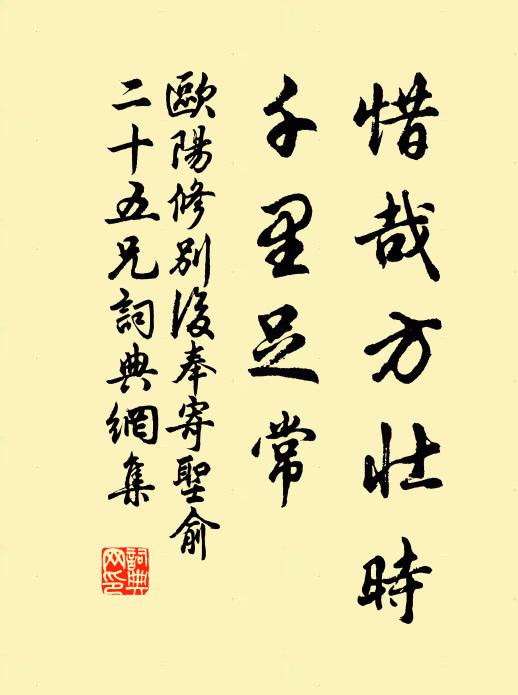 惜哉方壯時
千里足常
歐陽修別後奉寄聖俞
二十五兄詞典網集
詞典
网印